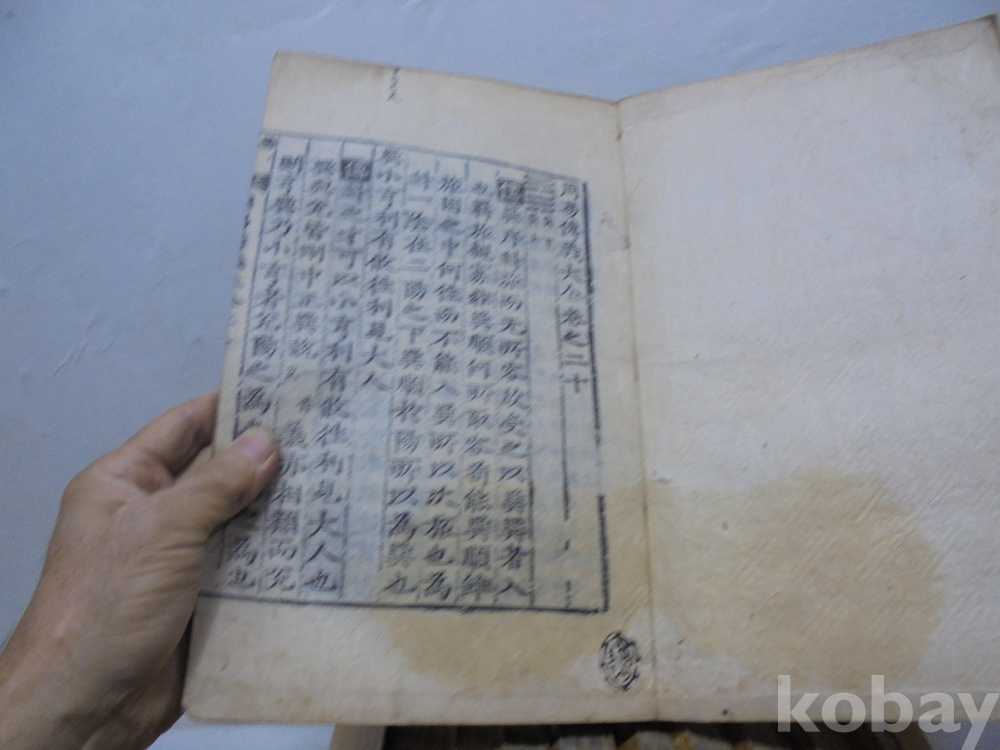 周易傳義大全卷之二十
巽下
巽上
傳巽序卦旅而无所容故受之以巽巽者入
也羈旅親寡非巽順何所取容苟能巽順雖
旅困之中何往而不能入巽所以次旅也為
卦一陰在二陽之下巽順於陽所以為巽也
巽小亨利有攸往利見大人
傳卦之才可以小亨利有攸往利見大人也
巽與兌皆剛中正巽說 義亦相類而兌
則亨巽乃小亨者兌陽之為 為也
kobay